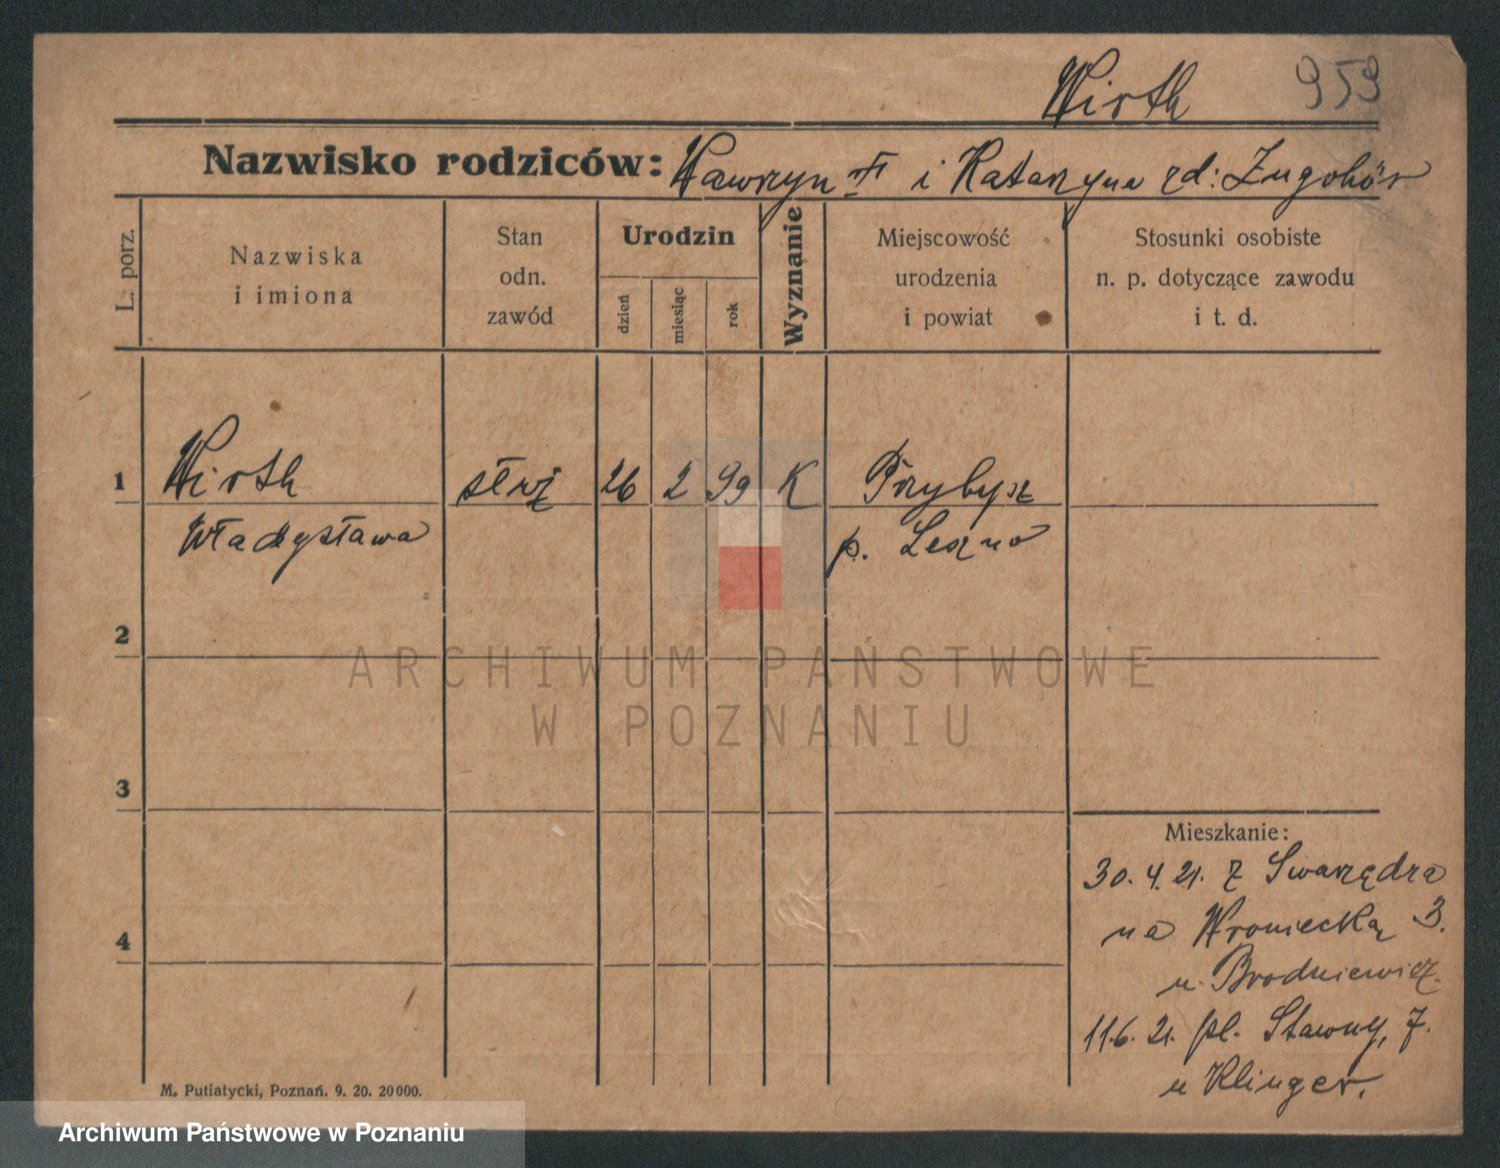 Wirth 959
Nazwisko rodziców: Wawrzyn i Katarzyna zd:
L. porz.
Nazwiska
i imiona
Stan
odn.
zawód
Urodzin
dzień
miesiąc
rok
Wyznanie
Miejscowość
urodzenia
i powiat
Stosunki osobiste
n. p. dotyczące zawodu
i t. d.
1 Wirth służ 26 2 99 K Przybysz
Władysława p. Leszno
2
ARCHIWUM PAŃSTWOWE
W POZNANIU
3
Mieszkanie:
30. 4. 21. z Swarzędza
na Wroniecką 3.
4
u. Brodniewicz.
11.6. 21. pl. Stawny, 7.
u Klinger.
M. Putiatycki, Poznań. 9. 20. 20000.
Archiwum Państwowe w Poznaniu